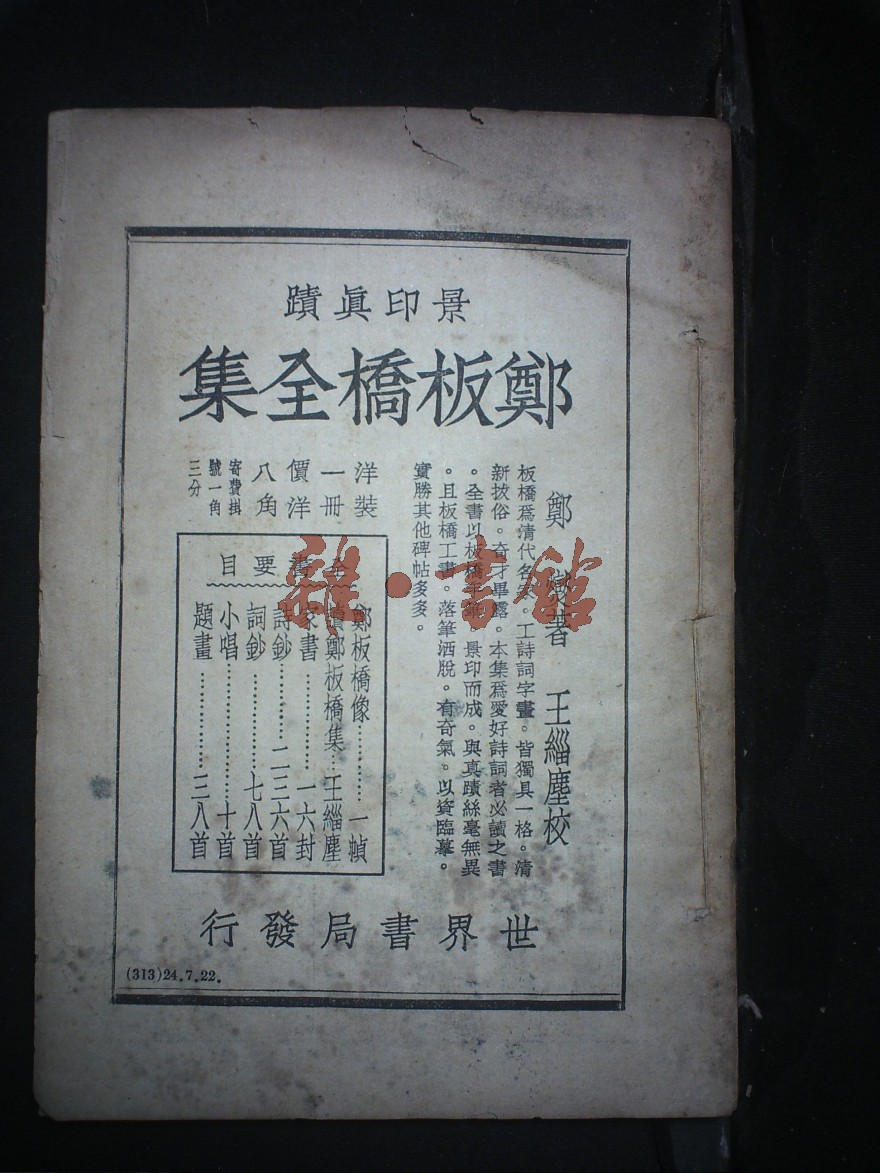 景印眞蹟
鄭板橋全集
鄭燮著 王緇塵校
板橋爲清代名。工詩詞字畫。皆獨具一格。清
新拔俗。奇才畢露。本集爲愛好詩詞者必讀之書
。全書以板橋手。景印而成。與真蹟絲毫無異
。且板橋工書。落筆洒脫。有奇氣。以資臨摹。
實勝其他碑帖多多。
洋裝
一冊
價洋
八角
寄費掛
號一角
三分
全書要目
鄭板橋像…………一幀
讀鄭板橋集…王緇塵
家書…………一六封
詩鈔…………二三六首
詞鈔…………七八首
小唱…………十首
題畫…………三八首
世界書局發行
(313)24.7.22.
雜·書館